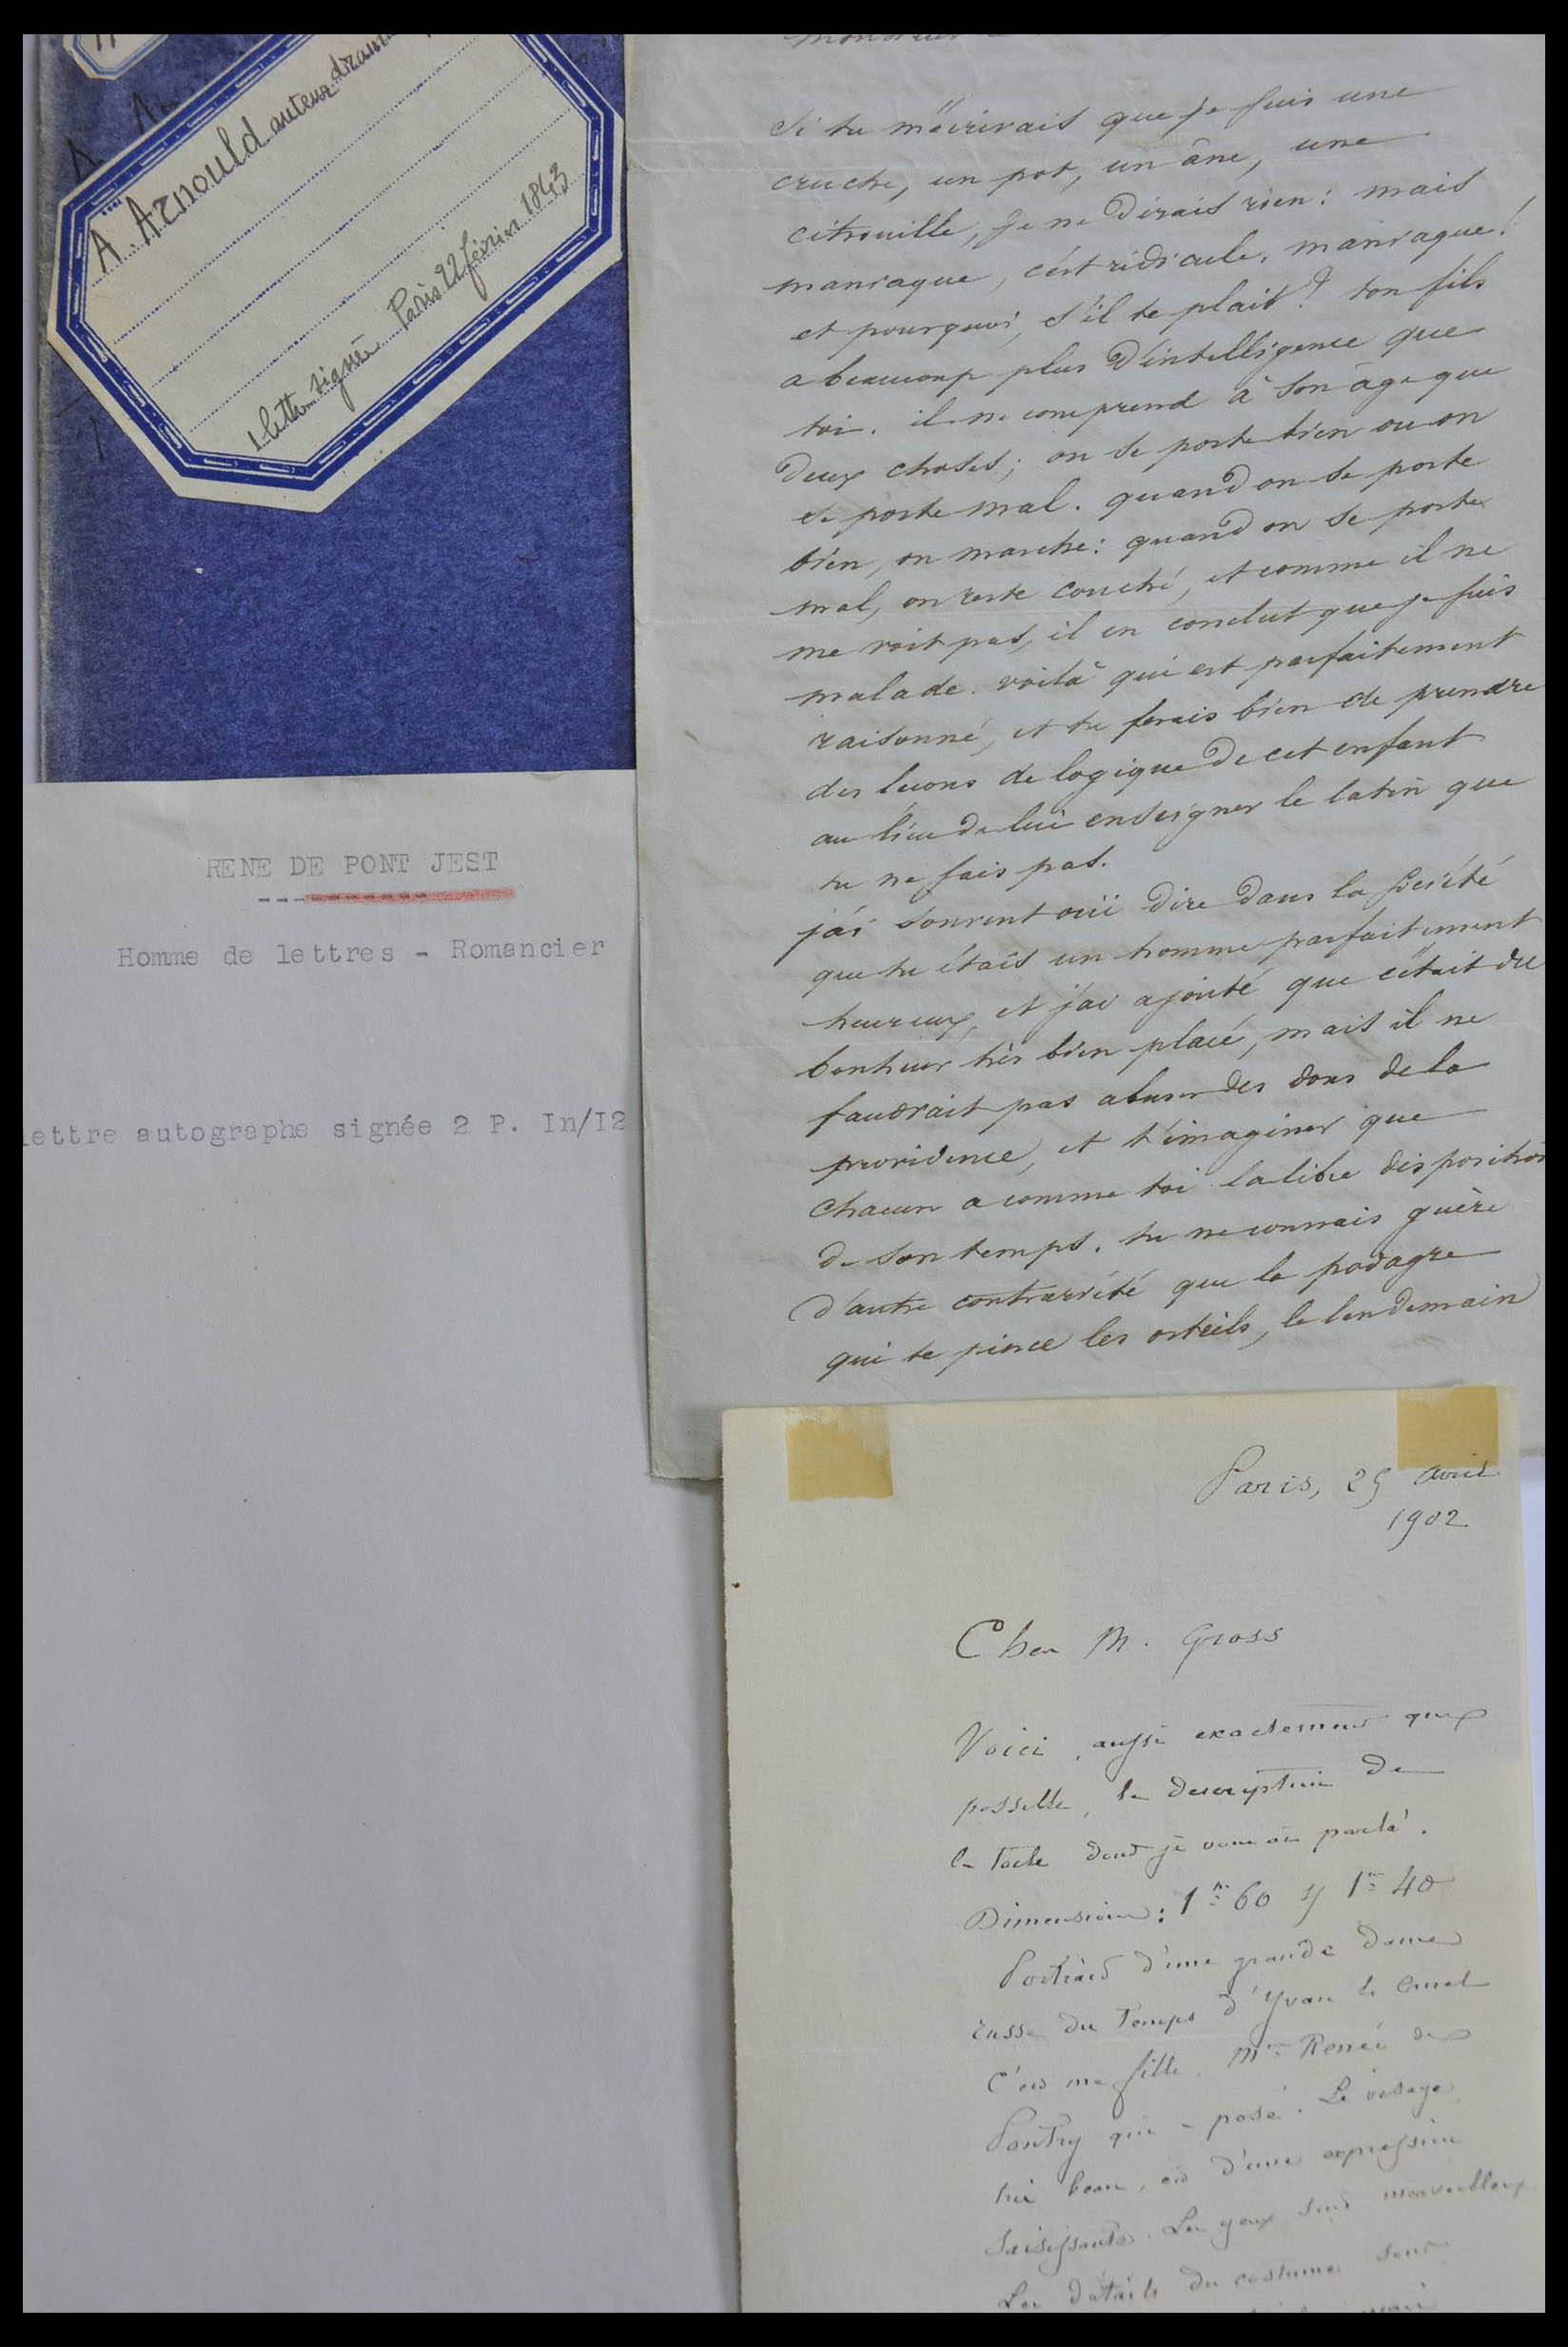 A. Arnould auteur
1 lettre signée Paris 22 février 1843
RENE DE PONT JEST
Homme de lettres - Romancier
Lettre autographe signée 2 P. In/I2
si tu m'écrivais que je suis une
cruche, un pot, un âne, une
citrouille, je ne dirais rien: mais
maniaque, c'est ridicule. maniaque!
et pourquoi, s'il te plait? ton fils
a beaucoup plus d'intelligence que
toi. il ne comprend à son âge que
deux choses; on se porte bien ou on
se porte mal. quand on se porte
bien, on marche: quand on se porte
mal, on reste couché, et comme il ne
me voit pas, il en conclut que je suis
malade. voilà qui est parfaitement
raisonné, et tu ferais bien de prendre
des lecons de logique de cet enfant
au lieu de lui enseigner le latin que
tu ne sais pas.
j'ai souvent ouï dire dans la société
que tu étais un homme parfaitement
heureux, et j'ai ajouté que c'était du
bonheur très bien placé, mais il ne
faudrait pas abuser des dons de la
providence, et t'imaginer que
chacun a comme toi la libre disposition
de son temps. tu ne connais guère
d'autre contrariété que la podagre
qui te pince les orteils, le lendemain
Paris, 25 avril
1902
Cher M. Gross
Voici, aussi exactement que
possible, la description de
la toile dont je vous ai parlé.
Dimensions: 1m 60 s/ 1m 40
Portrait d'une grande dame
russe du temps d'Yvan le Cruel
C'est ma fille, Mme Renée de
Pontry qui a posé. Le visage
très beau, est d'une expression
saisissante. Les yeux sont merveilleux
Les détails du costume sont